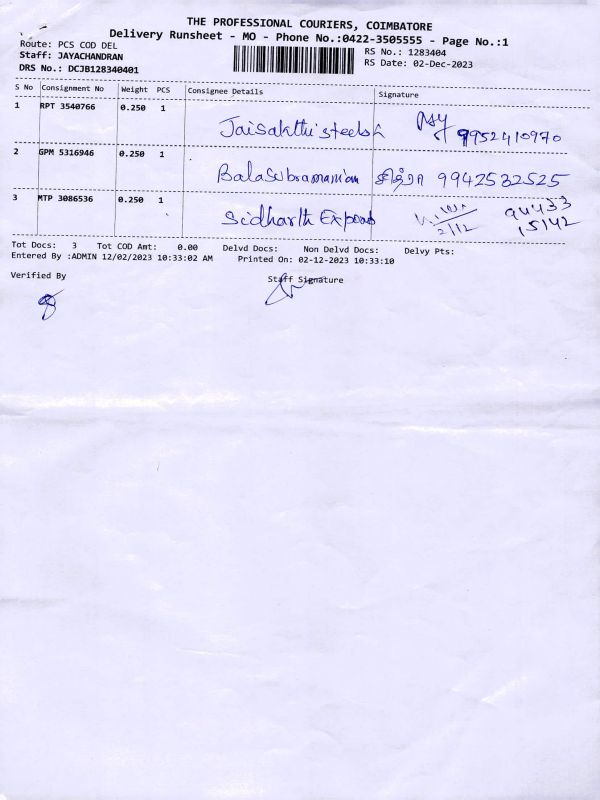 THE PROFESSIONAL COURIERS, COIMBATORE
Delivery Runsheet - MO - Phone No.:0422-3505555 - Page No.:1
Route: PCS COD DEL
RS No.: 1283404
Staff: JAYACHANDRAN
RS Date: 02-Dec-2023
DRS No.: DCJB128340401
S No Consignment No Weight PCS Consignee Details Signature
1 RPT 3540766 0.250 1 Jaisakthi steels 9952410970
2 GPM 5316946 0.250 1 Balasubramaniam சித்ரா 9942532525
3 MTP 3086536 0.250 1 Sidharth Exports 2/12 94433
15142
Tot Docs: 3 Tot COD Amt: 0.00 Delvd Docs: Non Delvd Docs: Delvy Pts:
Entered By :ADMIN 12/02/2023 10:33:02 AM Printed On: 02-12-2023 10:33:10
Verified By Staff Signature